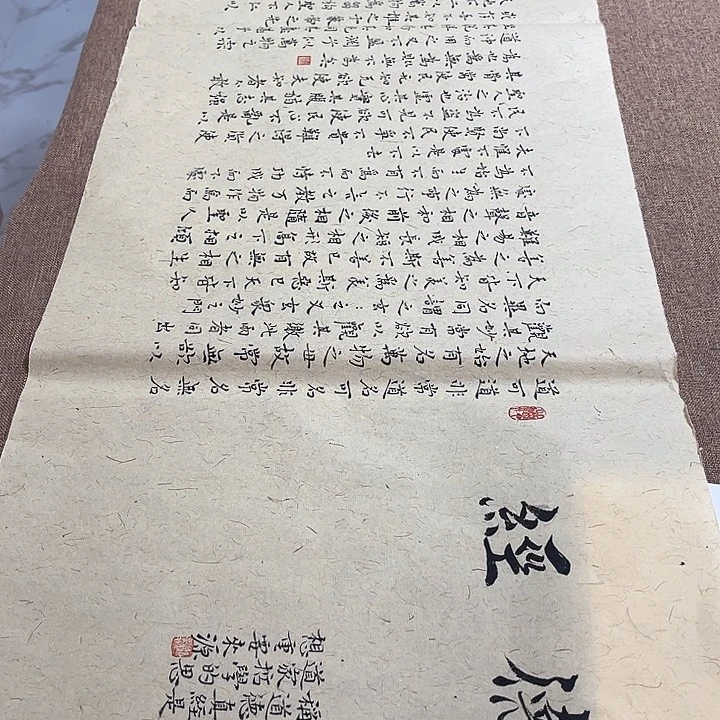 德經
稱道德真經是
道家哲學的思
想重要來源
道可道非常道名可名非常名無名
天地之始有名萬物之母故常無欲以
觀其妙常有欲以觀其徼此兩者同出
而異名同謂之玄之又玄眾妙之門
天下皆知美之為美斯惡已天下皆知
善之為善斯不善已故有無之相生
難易之相成長短之相形高下之相傾
音聲之相和前後之相隨是以聖人
處無為之事行不言之教萬物作焉而
不為始生而不有為而不恃功成而不處
夫惟不處是以不去
不尚賢使民不爭不貴難得之貨使
民不為盜不見可欲使民心不亂是以
聖人之治也虛其心實其腹弱其志強
其骨常使民無知無欲使夫知者不敢
為也為無為則無不為矣
道沖而用之又不盈淵乎似萬物之宗